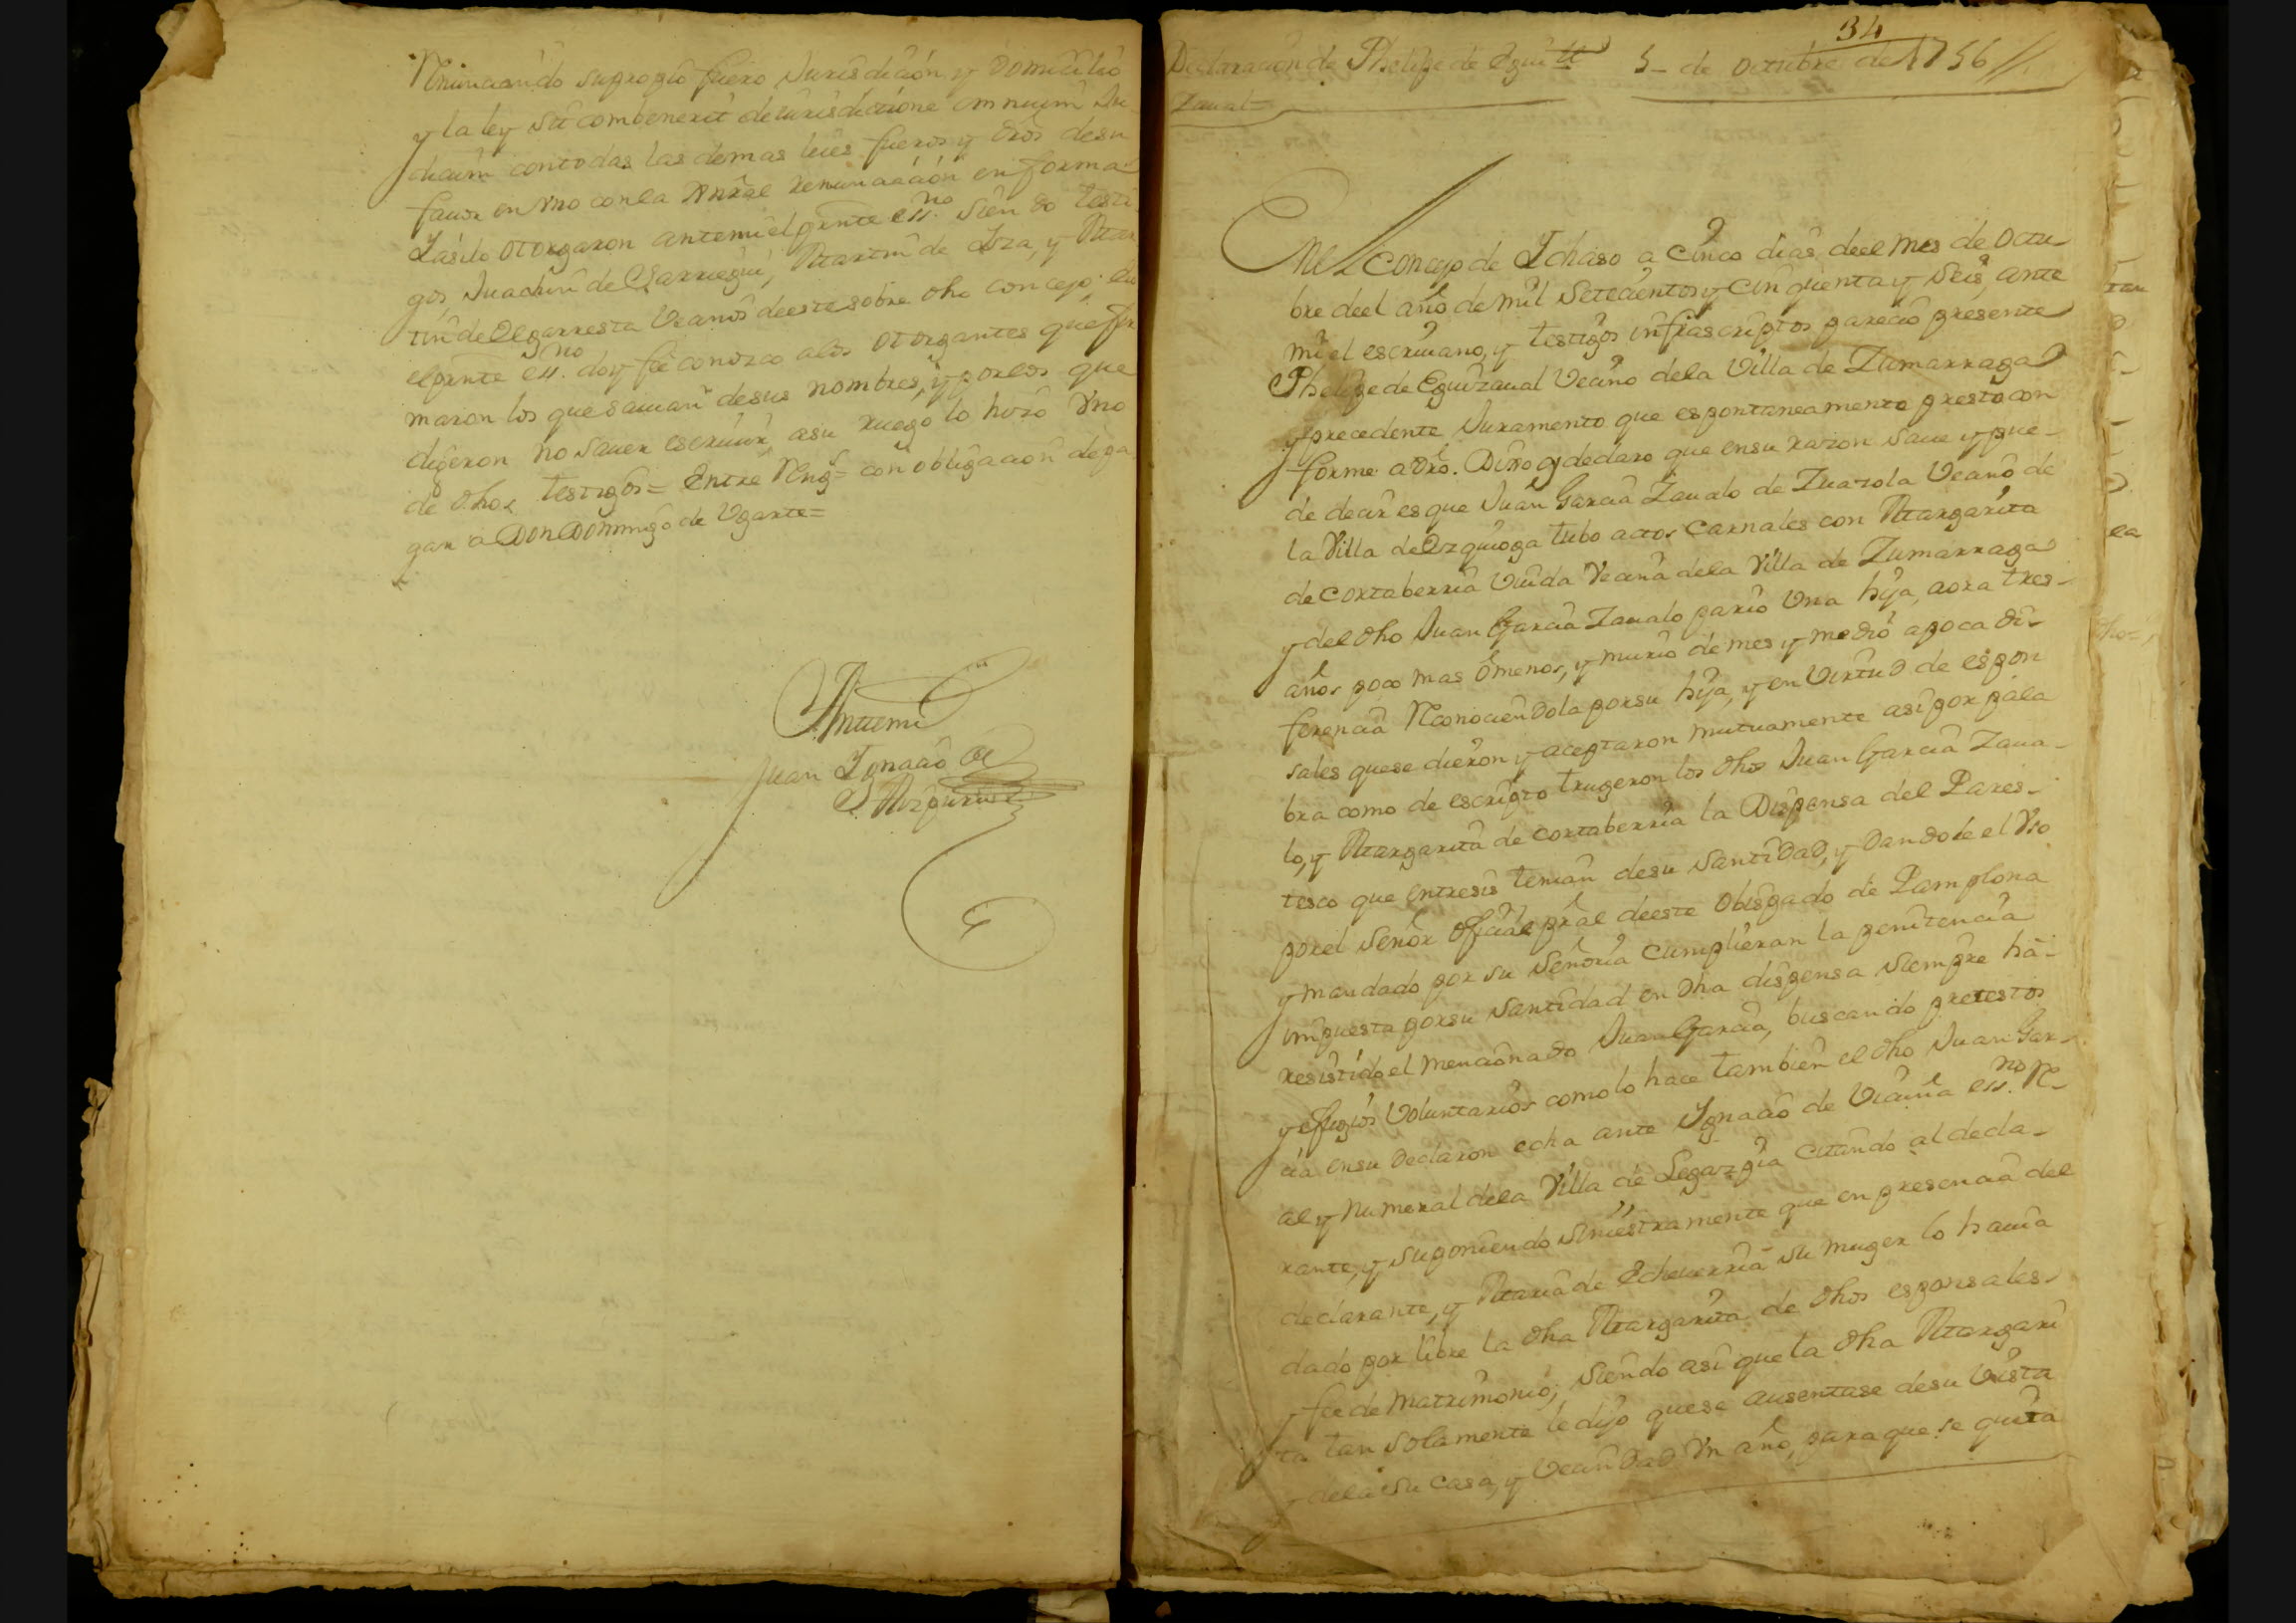 Renunciando su propio fuero Jurisdicion, y Domicilio
y la ley sit combenerit de iurisdictione omnium Ju
dicum con todas las demas leies fueros y dros de su
fauor en vno con la Genral renunciaciòn en forma
Y asi lo otorgaron ante mi el presnte essno. siendo testi
gos Juachin de Yzarriegui, Martin de Loza, y Mar
tin de Elgarresta Vecinos de este sobre dho concejo
el presnte essno. doy feè conozco alos otorgantes que fir
maron los que sauian de sus nombres, y por los que
digeron no sauer escriuir, asu ruego lo hizo vno
de dhos testigos= Entre Rengs= con obligacion de pa
gar a Don Domingo de Vgarte=
Antemi
Juan Ignacio de
Azpiazu
34
Declaracion de Phelipe de Egui
Zaual=
5- de octubre de 1756//.
En el Concejo de Ichaso a Cinco dias deel mes de octu-
bre deel año de mil setecientos y Cinquenta y seis, ante
mi el escriuano, y testigos infrascriptos pareció presente
Phelipe de Eguizaual Vecino dela Villa de Zumarraga
y precedente Juramento que espontaneamente presto con
forme a dro. Dijo y declaro que en su razon saue y pue-
de decir es que Juan Garcia Zaualo de Zuazola Vecino de
la Villa de Ezquioga tubo actos Carnales con Margarita
de Cortaberria Viuda Vecina dela Villa de Zumarraga
y del dho Juan Garcia Zaualo pario Vna hija, aora tres-
años poco mas ò menos, y murio de mes y medio a poca di-
ferencia Reconociendola por su hija, y en Virtud de espon
sales que se dieron y aceptaron mutuamente asi por pala
bra como de escripto trugeron los dhos Juan Garcia Zaua-
lo, y Margarita de Cortaberria la Dispensa del Pares-
tesco que entre sis tenian de su Santidad, y Dandole el Vso
por el señor oficial pral de este obispado de Pamplona
y mandado por su señoria Cumplieran la penitencia
impuesta por su santidad en dha dispensa siempre hà-
resistido el mencionado Juan Garcia, buscando pretestos
y efugios Voluntarios como lo hace tambien el dho Juan Gar-
cia en su Declaron echa ante Ignacio de Vicuña essno. Re-
al y Numeral dela Villa de Legazpia Citando al decla-
rante, y suponiendo siniestramente que en presencia del
declarante, y Maria de Echeuerria su muger lo hauia
dado por libre la dha Margarita de dhos esponsales
y feè de Matrimonio; siendo asi que la dha Margari
ta tan solamente le dijo que se ausentase de su Vista
y dela su Casa, y Vecindad Vn año, para que se quita